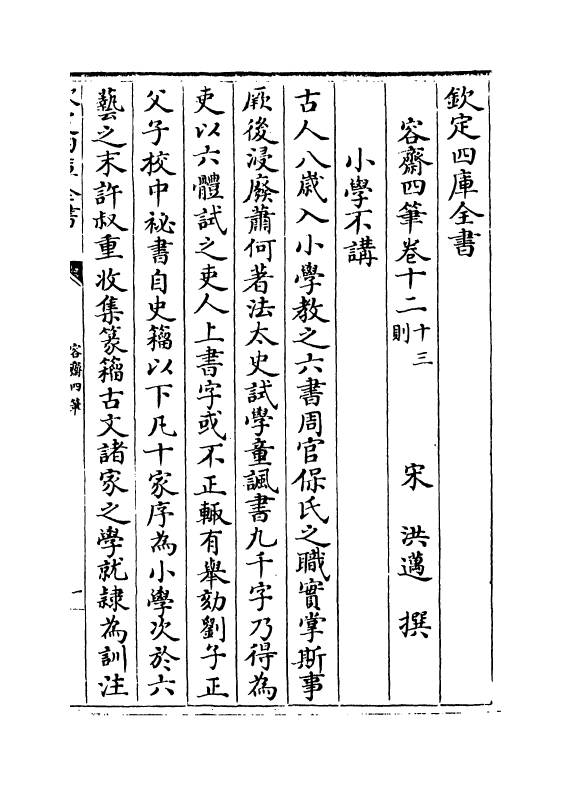 欽定四庫全書
容齋四筆卷十二 十三則 宋 洪邁 撰
小學不講
古人八歲入小學教之六書周官保氏之職實掌斯事
厥後浸廢蕭何著法太史試學童諷書九千字乃得為
吏以六體試之吏人上書字或不正輒有舉劾劉子正
父子校中祕書自史籀以下凡十家序為小學次於六
藝之末許叔重收集篆籀古文諸家之學就隷為訓注
容齋四筆
一